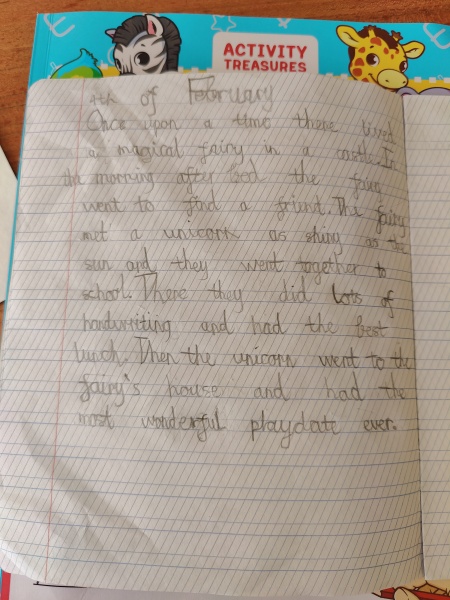 ACTIVITY
TREASURES
4th of February
Once upon a time there lived
a magical fairy in a castle. In
the morning after bed the fairy
went to find a friend. The fairy
met a unicorn as shiny as the
sun and they went together to
school. There they did Lots of
handwriting and had the best
lunch. Then the unicorn went to the
fairy's house and had the
most wonderful playdate ever.